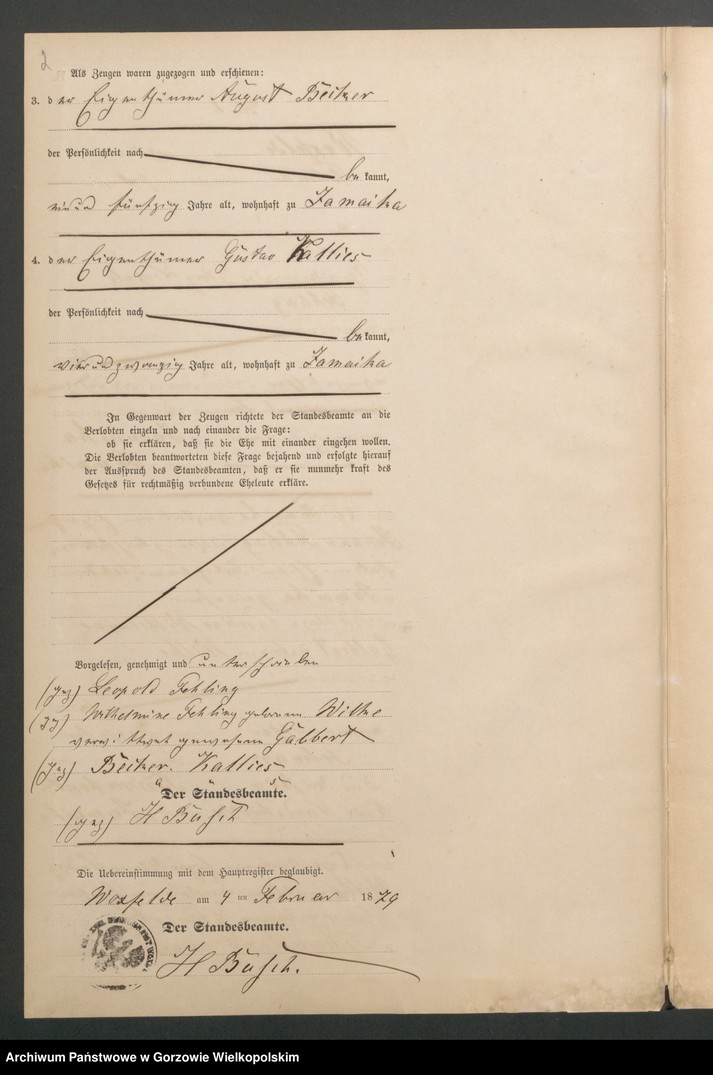 2
Als Zeugen waren zugezogen und erschienen:
3. der Eigenthümer August Beitzer
der Persönlichkeit nach
bekannt,
einund fünfzig Jahre alt, wohnhaft zu Jamaika
4. der Eigenthümer Gustav Kallies
der Persönlichkeit nach
bekannt,
vierundzwanzig Jahre alt, wohnhaft zu Jamaika
In Gegenwart der Zeugen richtete der Standesbeamte an die
Verlobten einzeln und nach einander die Frage:
ob sie erklären, daß sie die Ehe mit einander eingehen wollen.
Die Verlobten beantworteten diese Frage bejahend und erfolgte hierauf
der Ausspruch des Standesbeamten, daß er sie nunmehr kraft des
Gesetzes für rechtmäßig verbundene Eheleute erkläre.
Vorgelesen, genehmigt und unterschrieben
(gez) Leopold Fehling
(gz) Wilhelmine Fehling geborene Wilke
verwittwet gewesene Gabbert
(gez) Beitzer. Kallies
Der Standesbeamte.
(gez) H Busch
Die Uebereinstimmung mit dem Hauptregister beglaubigt.
Woxfelde am 4 ten Februar 1879
Der Standesbeamte.
H Busch.
Archiwum Państwowe w Gorzowie Wielkopolskim